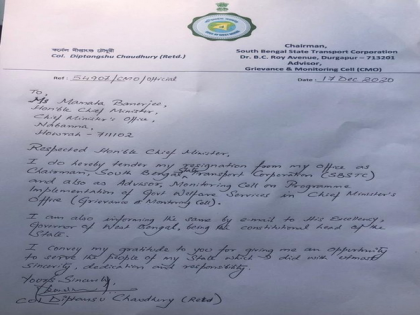 Chairman,
South Bengal State Transport Corporation
Dr. B.C. Roy Avenue, Durgapur - 713201
Advisor,
Grievance & Monitoring Cell (CMO)
Col. Diptangshu Chaudhury (Retd.)
Ref: 54902/CMO/Official
Date: 17 Dec 2020
To,
Ms Mamata Banerjee,
Hon'ble Chief Minister,
Chief Minister's Office,
Nabanna,
Howrah - 711102
Respected Hon'ble Chief Minister,
I do hereby tender my resignation from my office as
Chairman, South Bengal State Transport Corporation (SBSTC)
and also as Advisor, Monitoring Cell on Programme
Implementation of Govt Welfare Services in Chief Minister's
Office (Grievance & Monitoring Cell).
I am also informing the same by email to His Excellency,
Governor of West Bengal, being the constitutional head of the
State.
I convey my gratitude to you for giving me an opportunity
to serve the people of my State which I did with utmost
sincerity, dedication and responsibility.
Yours Sincerely,
Col Diptangshu Chaudhury (Retd)